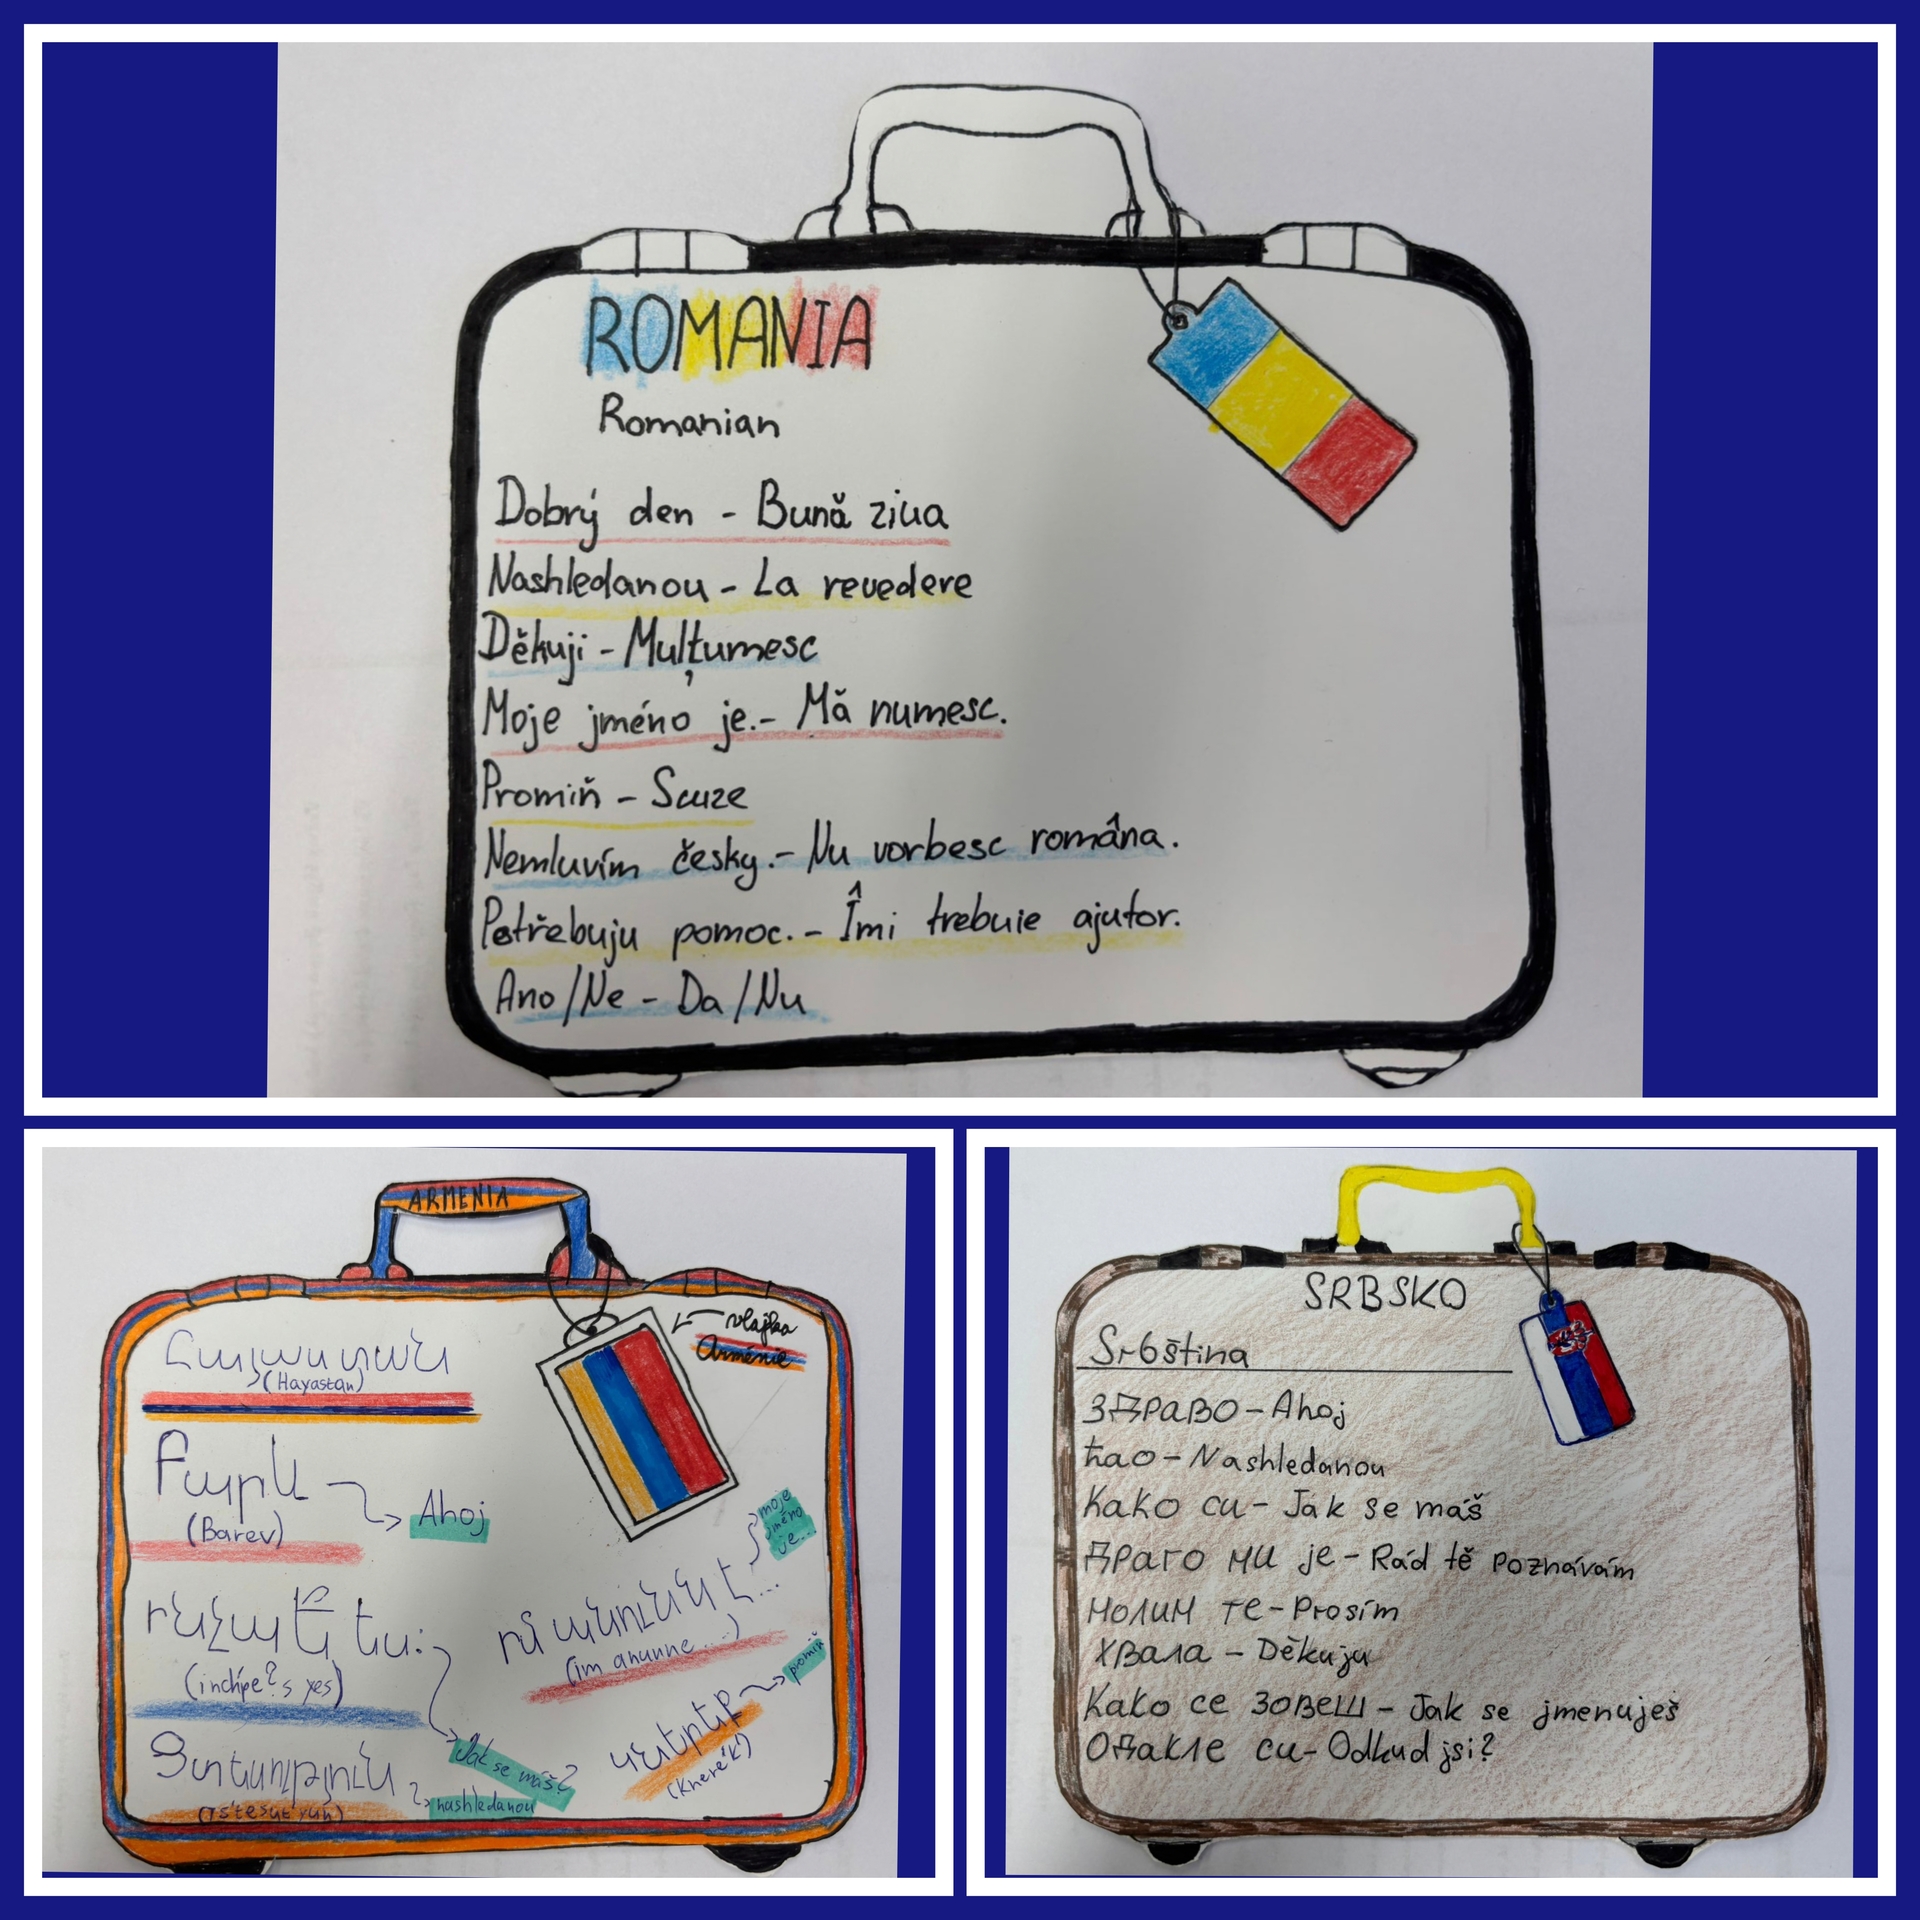 ROMANIA
Romanian
Dobrý den - Bună ziua
Nashledanou - La revedere
Děkuji - Mulțumesc
Moje jméno je. - Mă numesc.
Promiň - Scuze
Nemluvím česky. - Nu vorbesc româna.
Potřebuju pomoc. - Îmi trebuie ajutor.
Ano/Ne - Da/Nu
ARMENIA
vlajka
Arménie
Հայաստան
(Hayastan)
Բարև
Ahoj
(Barev)
moje
jméno
je...
Ինչպե՞ս ես:
(inch'pe?s yes)
Իմ անունն է...
(im anunne ....)
promiň
Ցտեսություն
(Ts'tesut'yun)
Jak se máš?
nashledanou
կներեք
(Knerek')
SRBSKO
Srbština
ЗДРАВО - Ahoj
ћао - Nashledanou
Како си - Jak se máš
Драго ми је - Rád tě poznávám
молим те - Prosím
хвала - Děkuju
Како се зовеш - Jak se jmenuješ
Одакле си - Odkud jsi?